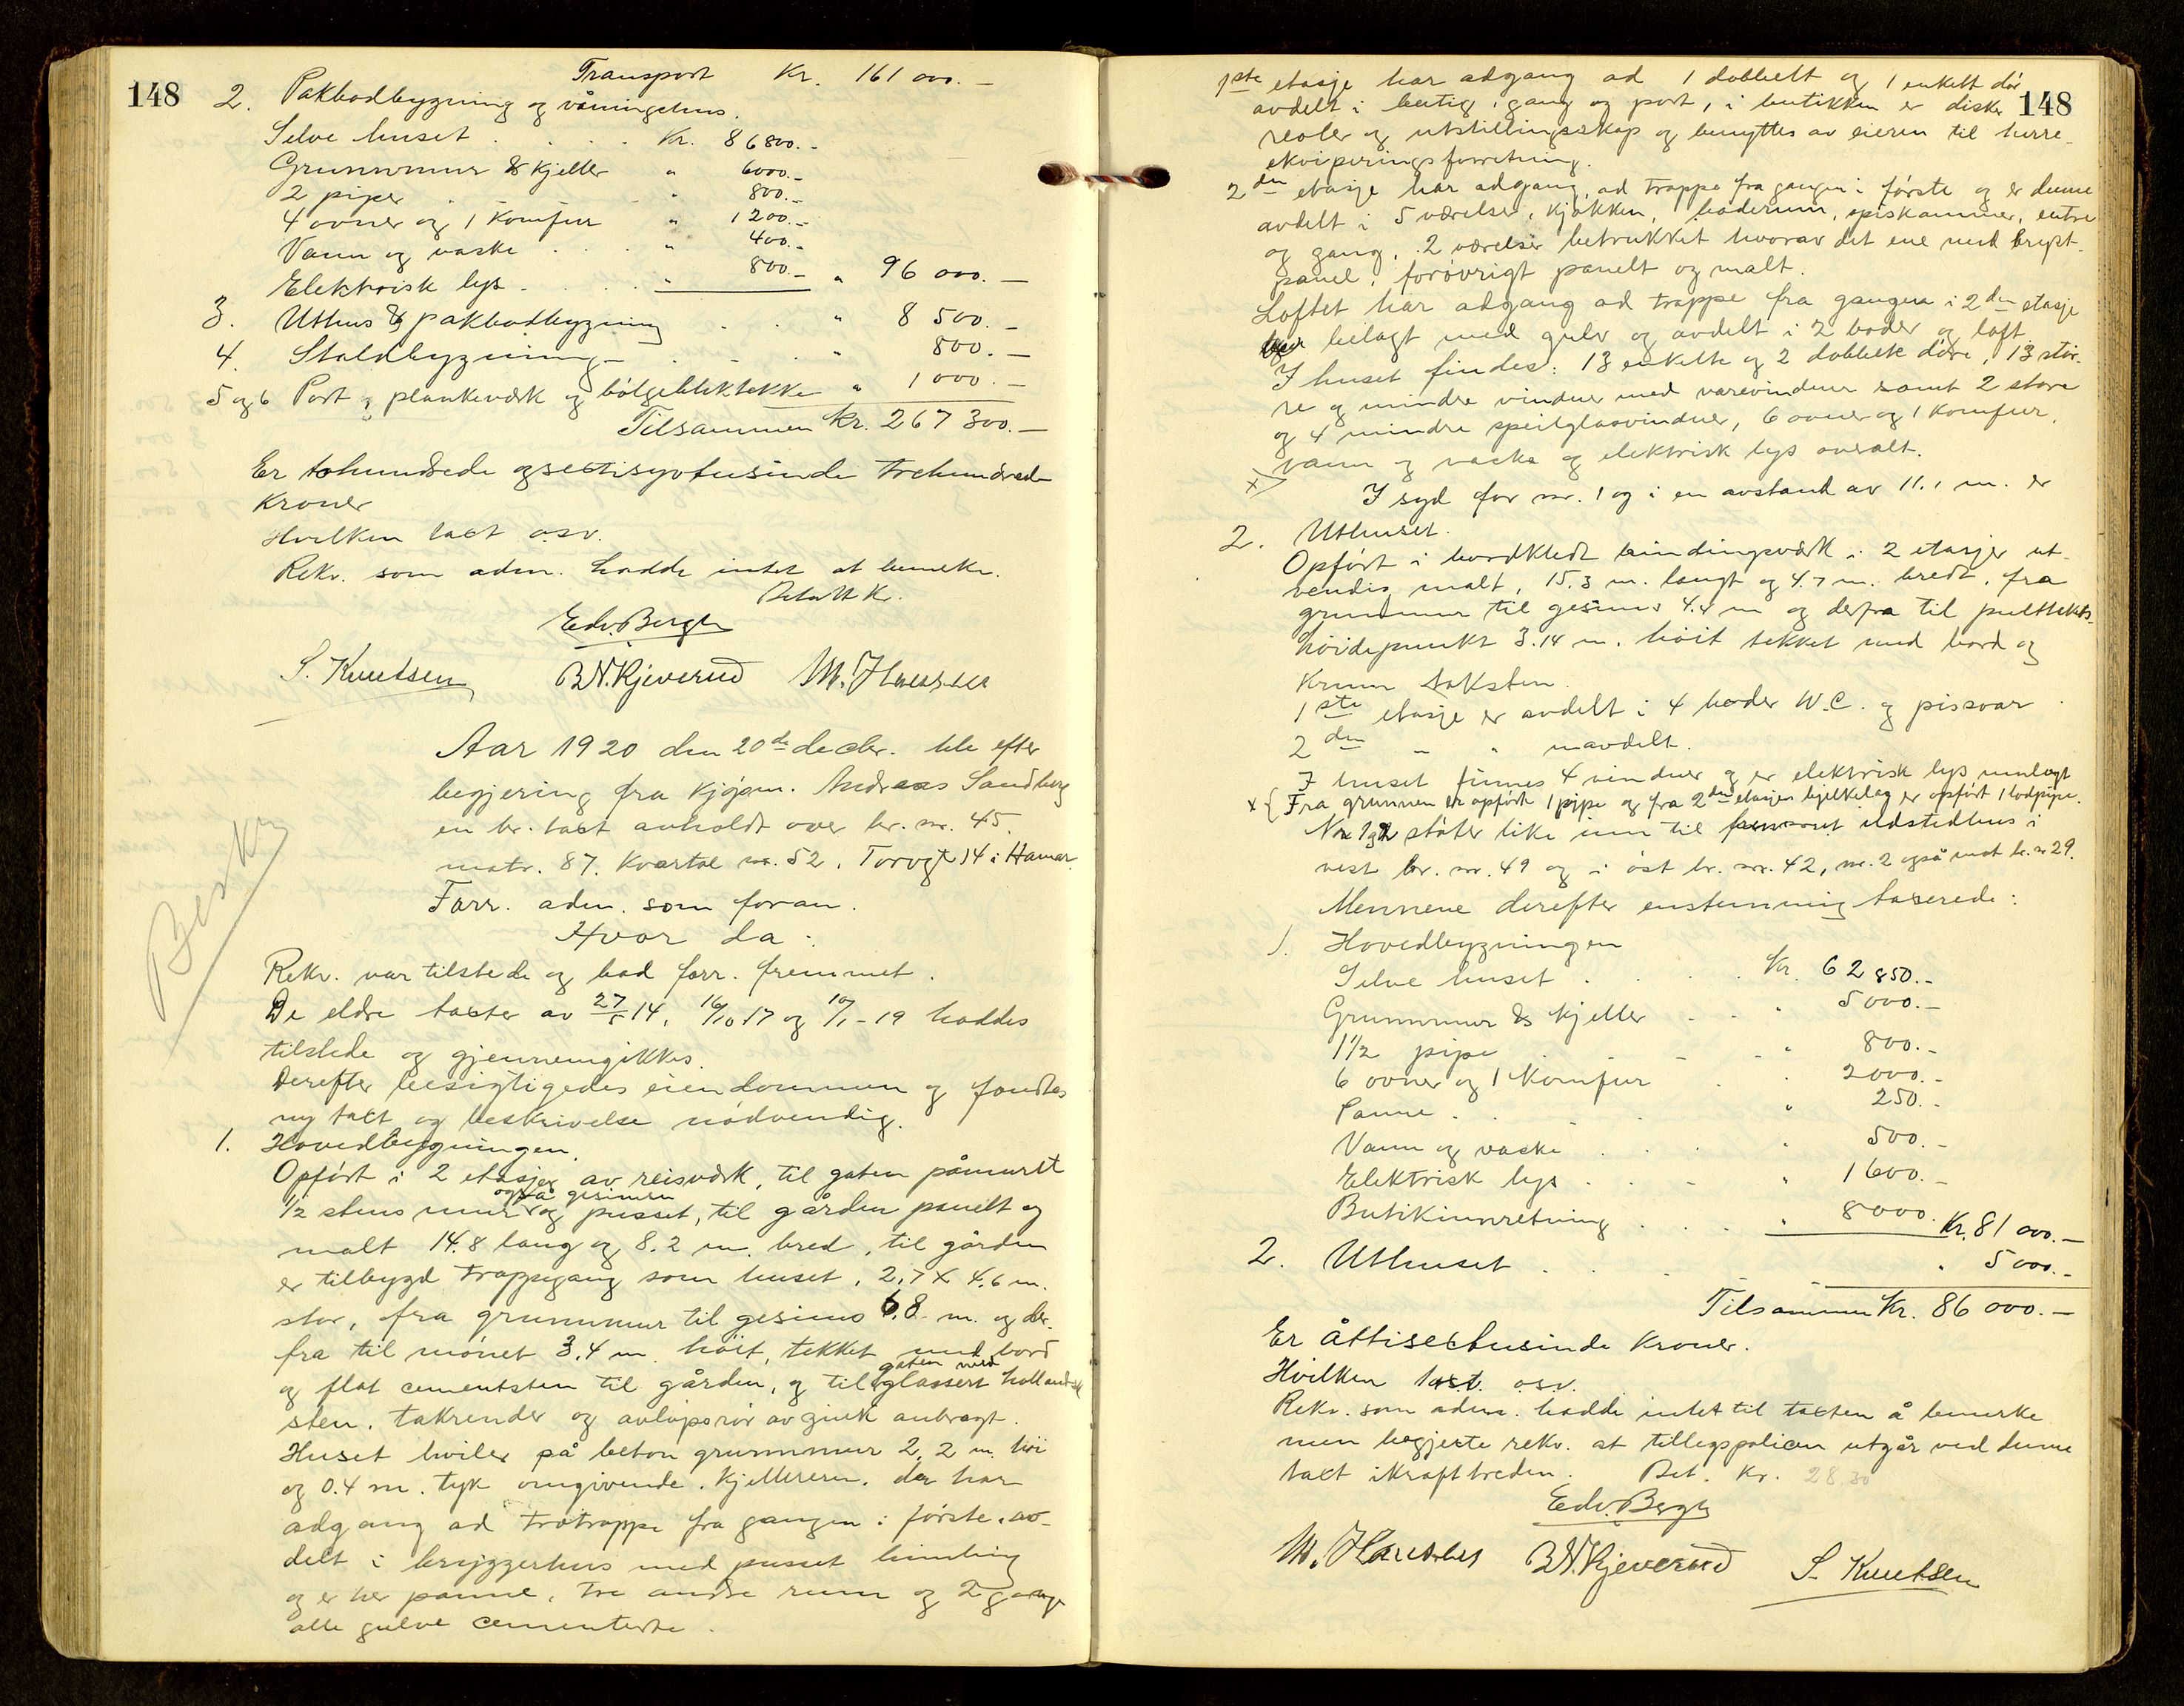 148
Transport Kr. 161 000.-
2. Pakbodbygning og våningshus.
Selve huset . . . . Kr. 86800.-
Grunnmur & kjeller " 6000.-
2 piper . . . " 800.-
4 ovner og 1 Komfur " 1200.-
Vann og vaske . . . " 400.-
Elektrisk lys . . . . " 800.- " 96 000.-
3. Uthus & pakbodbygning . . " 8 500.-
4. Staldbygning . . . " 800.-
5 og 6 Port, plankeværk og bølgebliktekke " 1 000.-
Tilsammen Kr. 267 300.-
Er tohundrede ogsectisyvtusinde trehundrede
Kroner
Hvilken taxt osv.
Rekv. som adm. hadde intet at bemerke.
Betalt Kr.
Edv. Bergh
S. Knutsen B.N. Kjeverud M. Hansen
Beskr
Aar 1920 den 20de decbr. ble efter
begjering fra Kjøpm. Andreas Sandberg
en br. taxt avholdt over br. nr. 45,
matr. 87, Kvartal nr. 52, Torvgt 14 i Hamar.
Forr. adm. som foran.
Hvor da:
Rekv. var tilstede og bad forr. fremmet.
De eldre taxter av 27/5 14, 16/10 17 og 10/1 - 19 haddes
tilstede og gjennemgikkes.
Derefter besigtigedes eiendommen og fandtes
ny taxt og beskrivelse nødvendig.
1. Hovedbygningen.
Opført i 2 etasjer av reisverk, til gaten påmuret
også gesimsen
1/2 stens mur og pusset, til gården panelt og
malt 14.8 lang og 8.2 m. bred, til gården
er tilbygd trappegang som huset, 2.7 x 4.6 m.
stor, fra grunnmur til gesims 6.8 m. og der-
fra til mønet 3.4 m. høit, tekket med bord
gaten med
og flat cementsten til gården, og til glassert hollandsk
sten. takrender og avløpsrør av zink anbragt.
Huset hviler på beton grunnmur 2,2 m. høi
og 0.4 m. tyk omgivende. Kjelleren, der har
adgang ad tretrappe fra gangen i første, av-
delt i bryggerhus med pusset himling
og er her panne, tre andre rum og 2 gange
alle gulve cementerte.
148
1ste etasje har adgang ad 1 dobbelt og 1 enkelt dør
avdelt i butig, gang og port, i butikken er diske
reoler og utstillingsskap og benyttes av eieren til herre-
ekviperingsforretning.
2den etasje har adgang, ad trappe fra gangen i første og er denne
avdelt i 5 værelser, kjøkken, baderum, spiskammer, entre
og gang, 2 værelser betrukket hvorav det ene med bryst-
panel, forøvrigt panelt og malt.
Loftet har adgang ad trappe fra gangen i 2den etasje
belagt med gulv og avdelt i 2 boder og loft.
I huset findes: 13 enkelte og 2 dobbelte døre, 13 stør-
re og mindre vinduer med varevinduer samt 2 store
og 4 mindre speilglasvinduer, 6 ovner og 1 Komfur,
vann og vaske og elektrisk lys overalt.
x) I syd for nr. 1 og i en avstand av 11.1 m. er
2. Uthuset.
Opført i bordkledt bindingsverk i 2 etasjer ut-
vendig malt, 15.3 m. langt og 4.7 m. bredt, fra
grundmur til gesims 4.4 m og derfra til pulttakets
høidepunkt 3.14 m. høit tekket med bord og
krum taksten.
1ste etasje er avdelt i 4 boder W.C. og pissoar.
2den - " uavdelt.
I huset finnes 4 vinduer og er elektrisk lys innlagt
x { Fra grunnen er opført 1 pipe og fra 2den etasjes bjelkelag er opført 1 lodpipe.
Nr 1 og 2 støter like inn til udstedhus i
vest br. nr. 49 og i øst br. nr. 42, nr. 2 også mot br. nr 29.
Mennene derefter enstemmig taxerede:
1. Hovedbygningen
Selve huset . . . . Kr. 62 850.-
Grunnmur & Kjeller . . . " 5000.-
1 1/2 pipe . . . " 800.-
6 ovner og 1 Komfur . . 2000.-
Panne . . . " 250.-
Vann og vaske . . . . 500.-
Elektrisk lys . . . " 1600.-
Butikinnretning . . . . " 8000. Kr. 81 000.-
2. Uthuset . . . . " 5 000.-
Tilsammen Kr. 86 000.-
Er åttisectusinde kroner.
Hvilken taxt osv.
Rekv. som adm. hadde intet til taxten å bemerke
men begjerte rekv. at tillegspolicen utgår ved denne
taxt ikrafttreden. Bet. Kr. 28.30
Edv. Bergh
M. Hansen B.N. Kjeverud S. Knutsen